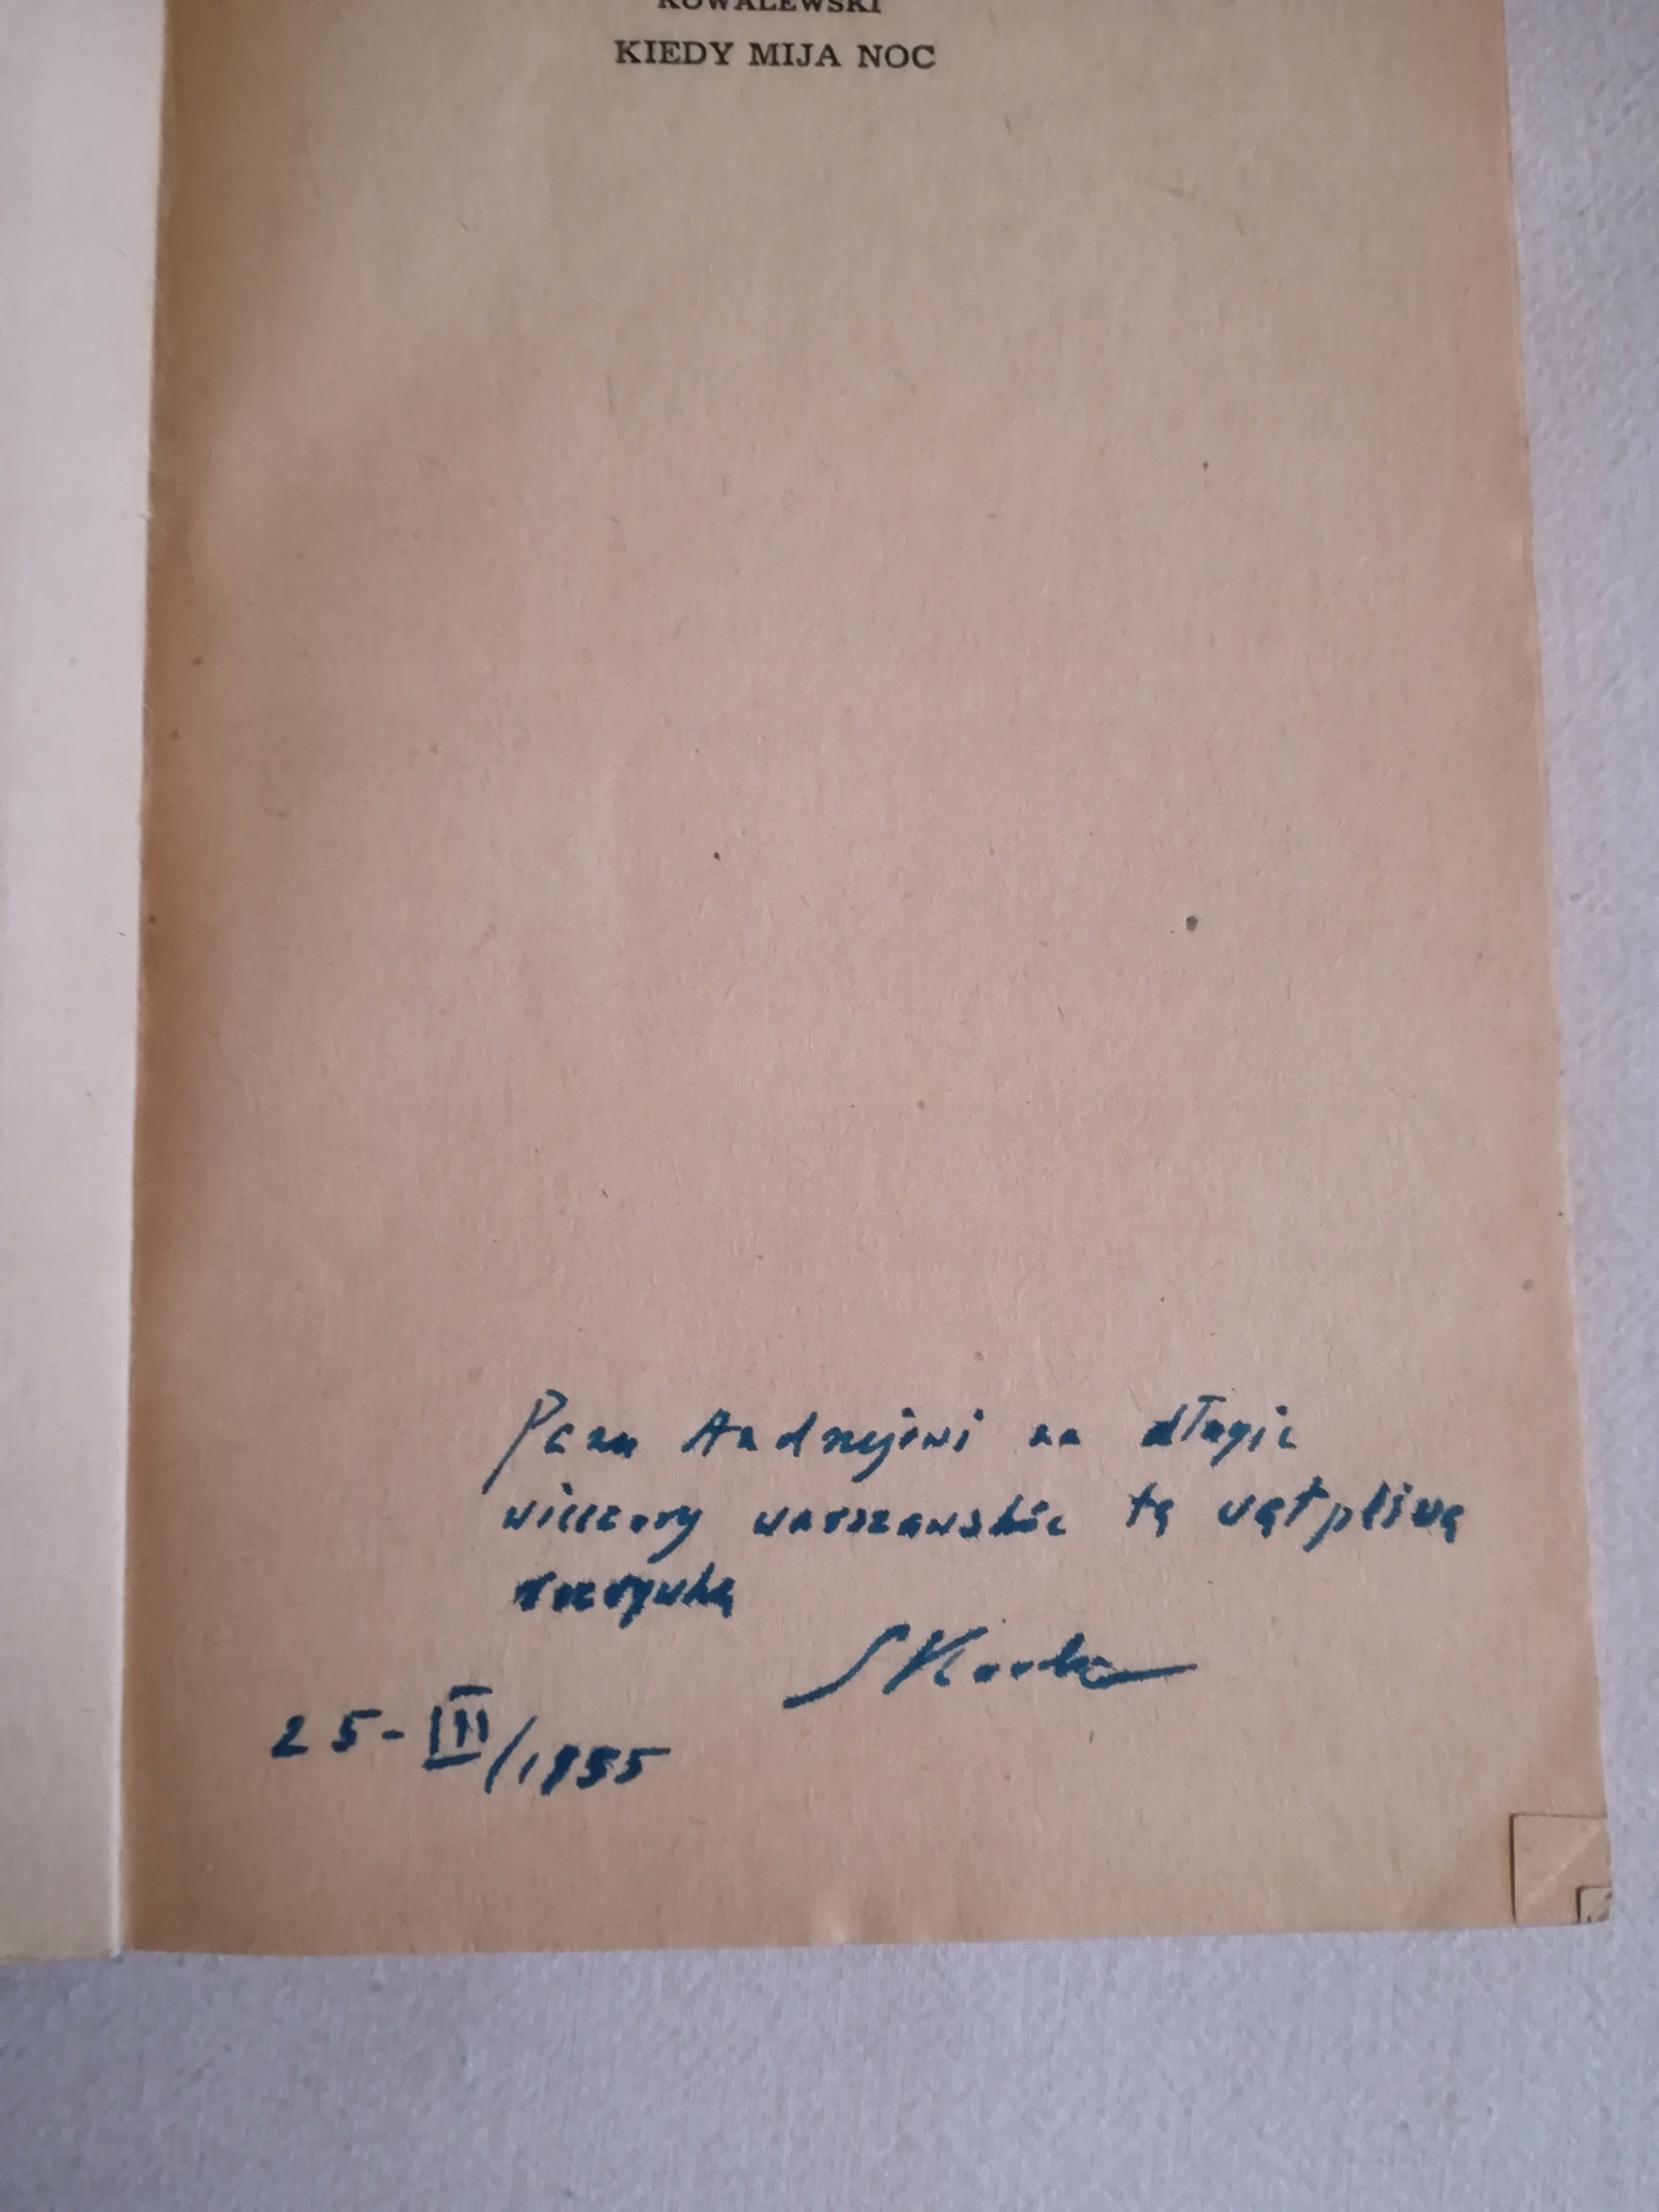 KOWALEWSKI
KIEDY MIJA NOC
Panu Andrzejowi na długie
wieczory warszawskie tę wątpliwą
rozrywkę
25-III/1955